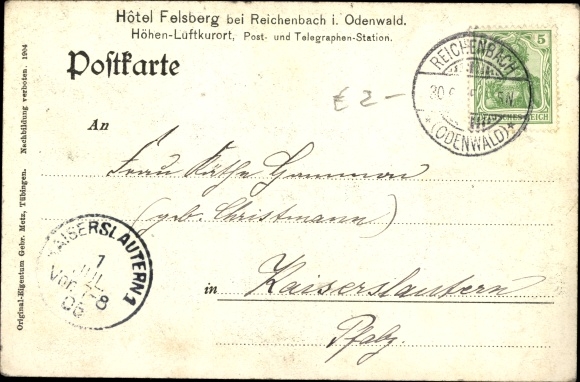 Hôtel Felsberg bei Reichenbach i. Odenwald.
Höhen-Luftkurort, Post- und Telegraphen-Station.
Postkarte
5
DEUTSCHES REICH
REICHENBACH
30
* (ODENWALD) *
€ 2-
An
Frau Käthe
(geb. Christmann)
in Kaiserslautern
Pfalz.
KAISERSLAUTERN 1
1
JUL.
Vor. 7-8
05
Original-Eigentum Gebr. Metz, Tübingen. Nachbildung verboten. 1904